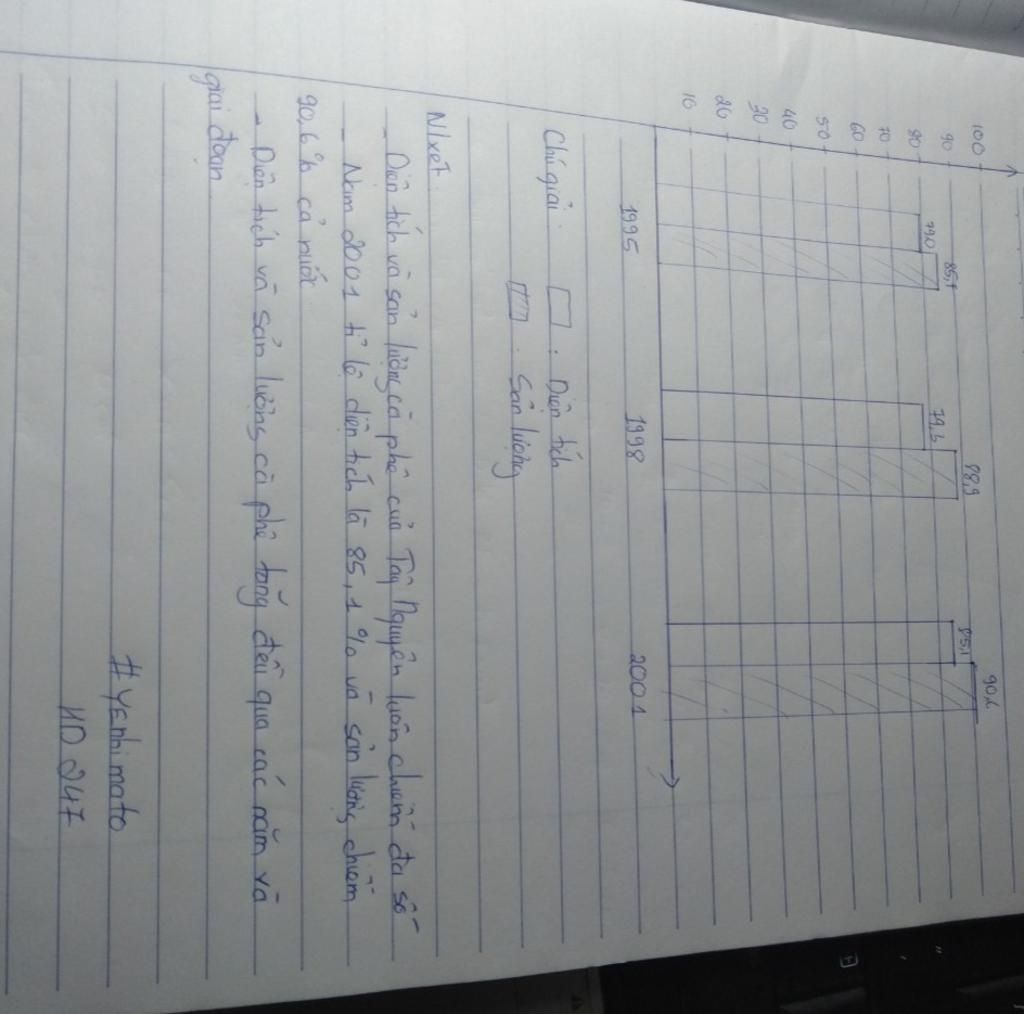 100
90
80
70
60
50
40
30
20
10
79,0
85,7
79,3
88,9
85,1
90,6
1995
1998
2001
Chú giải: : Diện tích
: Sản lượng
N/xét:
- Diện tích và sản lượng cà phê của Tây Nguyên luôn chiếm đa số
- Năm 2001 tỉ lệ diện tích là 85,1% và sản lượng chiếm
90,6% cả nước
- Diện tích và sản lượng cà phê tăng đều qua các năm và
giai đoạn
#Yenhimato
HD 247